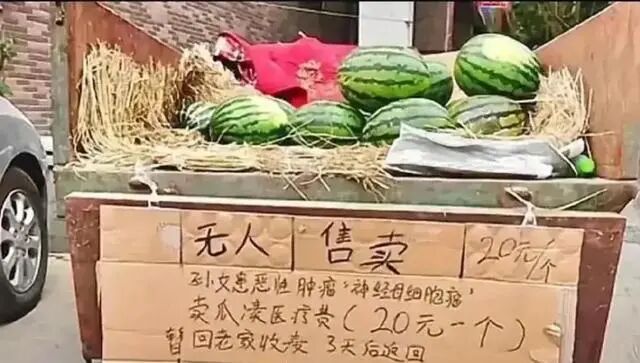 无人 售卖 20元/个
孙女患恶性肿瘤“神经母细胞瘤”
卖瓜凑医疗费(20元一个)
暂回老家收麦 3天后返回